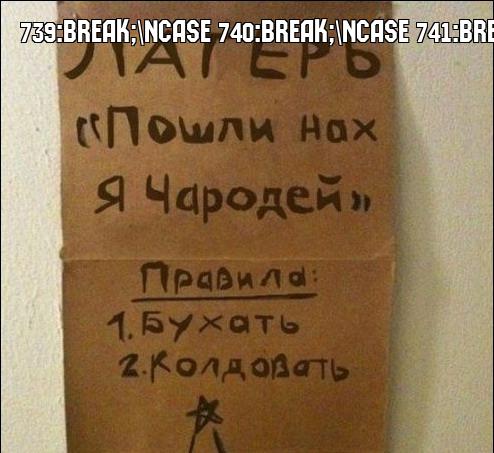 739:BREAK;\NCASE 740:BREAK;\NCASE 741:BRE
ЛАГЕРЬ
«Пошли нах
Я Чародей»
Правила:
1. Бухать
2. Колдовать